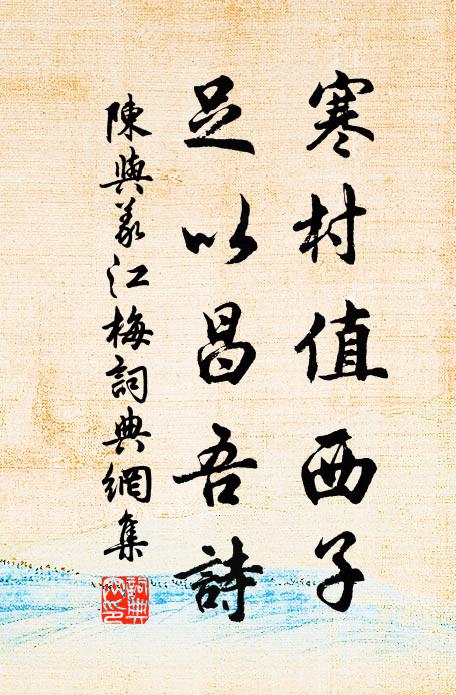 寒村值西子
足以昌吾詩
陳與義江梅詞典網集